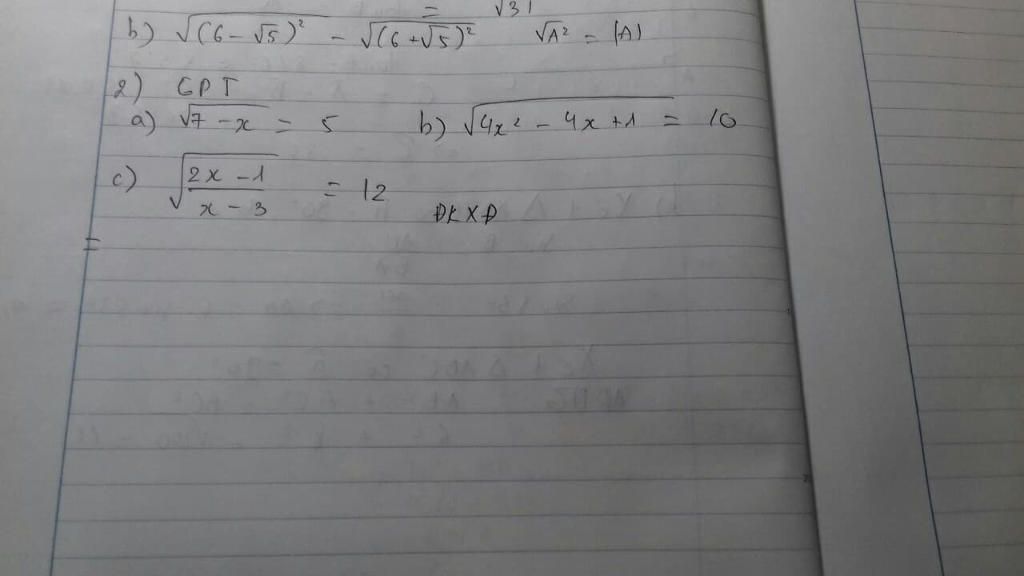 = √31
b) √(6 - √5)² - √(6 + √5)² √A² = |A|
2) GPT
a) √7 - x = 5 b) √4x² - 4x + 1 = 10
c) √2x - 1 / x - 3 = 12
ĐKXĐ
=